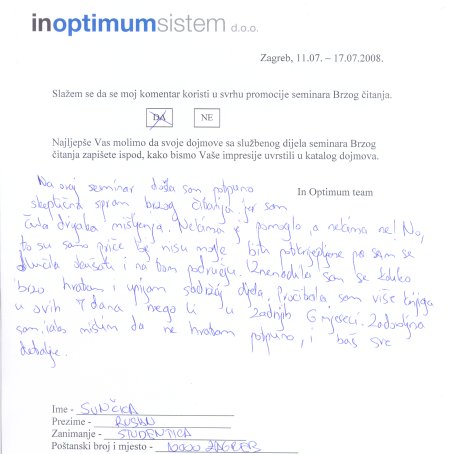 inoptimumsistem d.o.o.
Zagreb, 11.07. – 17.07.2008.
Slažem se da se moj komentar koristi u svrhu promocije seminara Brzog čitanja.
DA NE
Najljepše Vas molimo da svoje dojmove sa službenog dijela seminara Brzog
čitanja zapišete ispod, kako bismo Vaše impresije uvrstili u katalog dojmova.
In Optimum team
Na ovaj seminar došla sam potpuno
skeptična spram brzog čitanja jer sam
čula drugaba mišljenja. Nekima je pomoglo, a nekima ne! No,
to su samo priče koje nisu mogle biti potkrijepljene pa sam se
odlučila okušati i na tom području. Iznenadila sam se koliko
brzo hvatam i upijam sadržaj djela. Pročitala sam više knjiga
u ovih 7 dana nego li u zadnjih 6 mjeseci. Zadovoljna
sam, iako mislim da ne hvatam potpuno, i baš sve
detalje.
Ime - SUNČICA
Prezime - RUSAN
Zanimanje - STUDENTICA
Poštanski broj i mjesto - 10000 ZAGREB